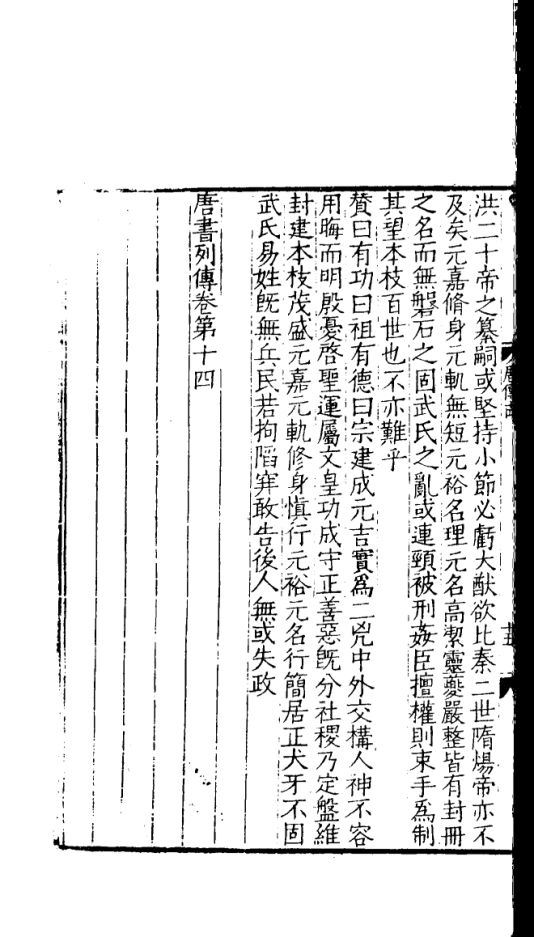 洪二十帝之纂嗣或堅持小節必虧大猷欲比秦二世隋煬帝亦不
及矣元嘉脩身元軌無短元裕名理元名高潔靈夔嚴整皆有封冊
之名而無磐石之固武氏之亂或連頸被刑姦臣擅權則束手爲制
其望本枝百世也不亦難乎
贊曰有功曰祖有德曰宗建成元吉實爲二兇中外交構人神不容
用晦而明殷憂啓聖運屬文皇功成守正善惡旣分社稷乃定盤維
封建本枝茂盛元嘉元軌修身慎行元裕元名行簡居正犬牙不固
武氏易姓旣無兵民若拘陷穽敢告後人無或失政
唐書列傳卷第十四